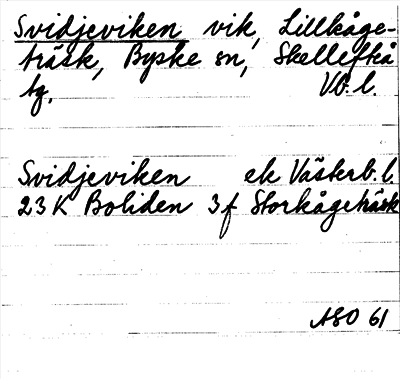 Svidjeviken vik, Lillkåge-
träsk, Byske sn, Skellefteå
tg. Vb. l.
Svidjeviken ek Västerb. l.
23 K Boliden 3 f Storkågeträsk
ASO 61